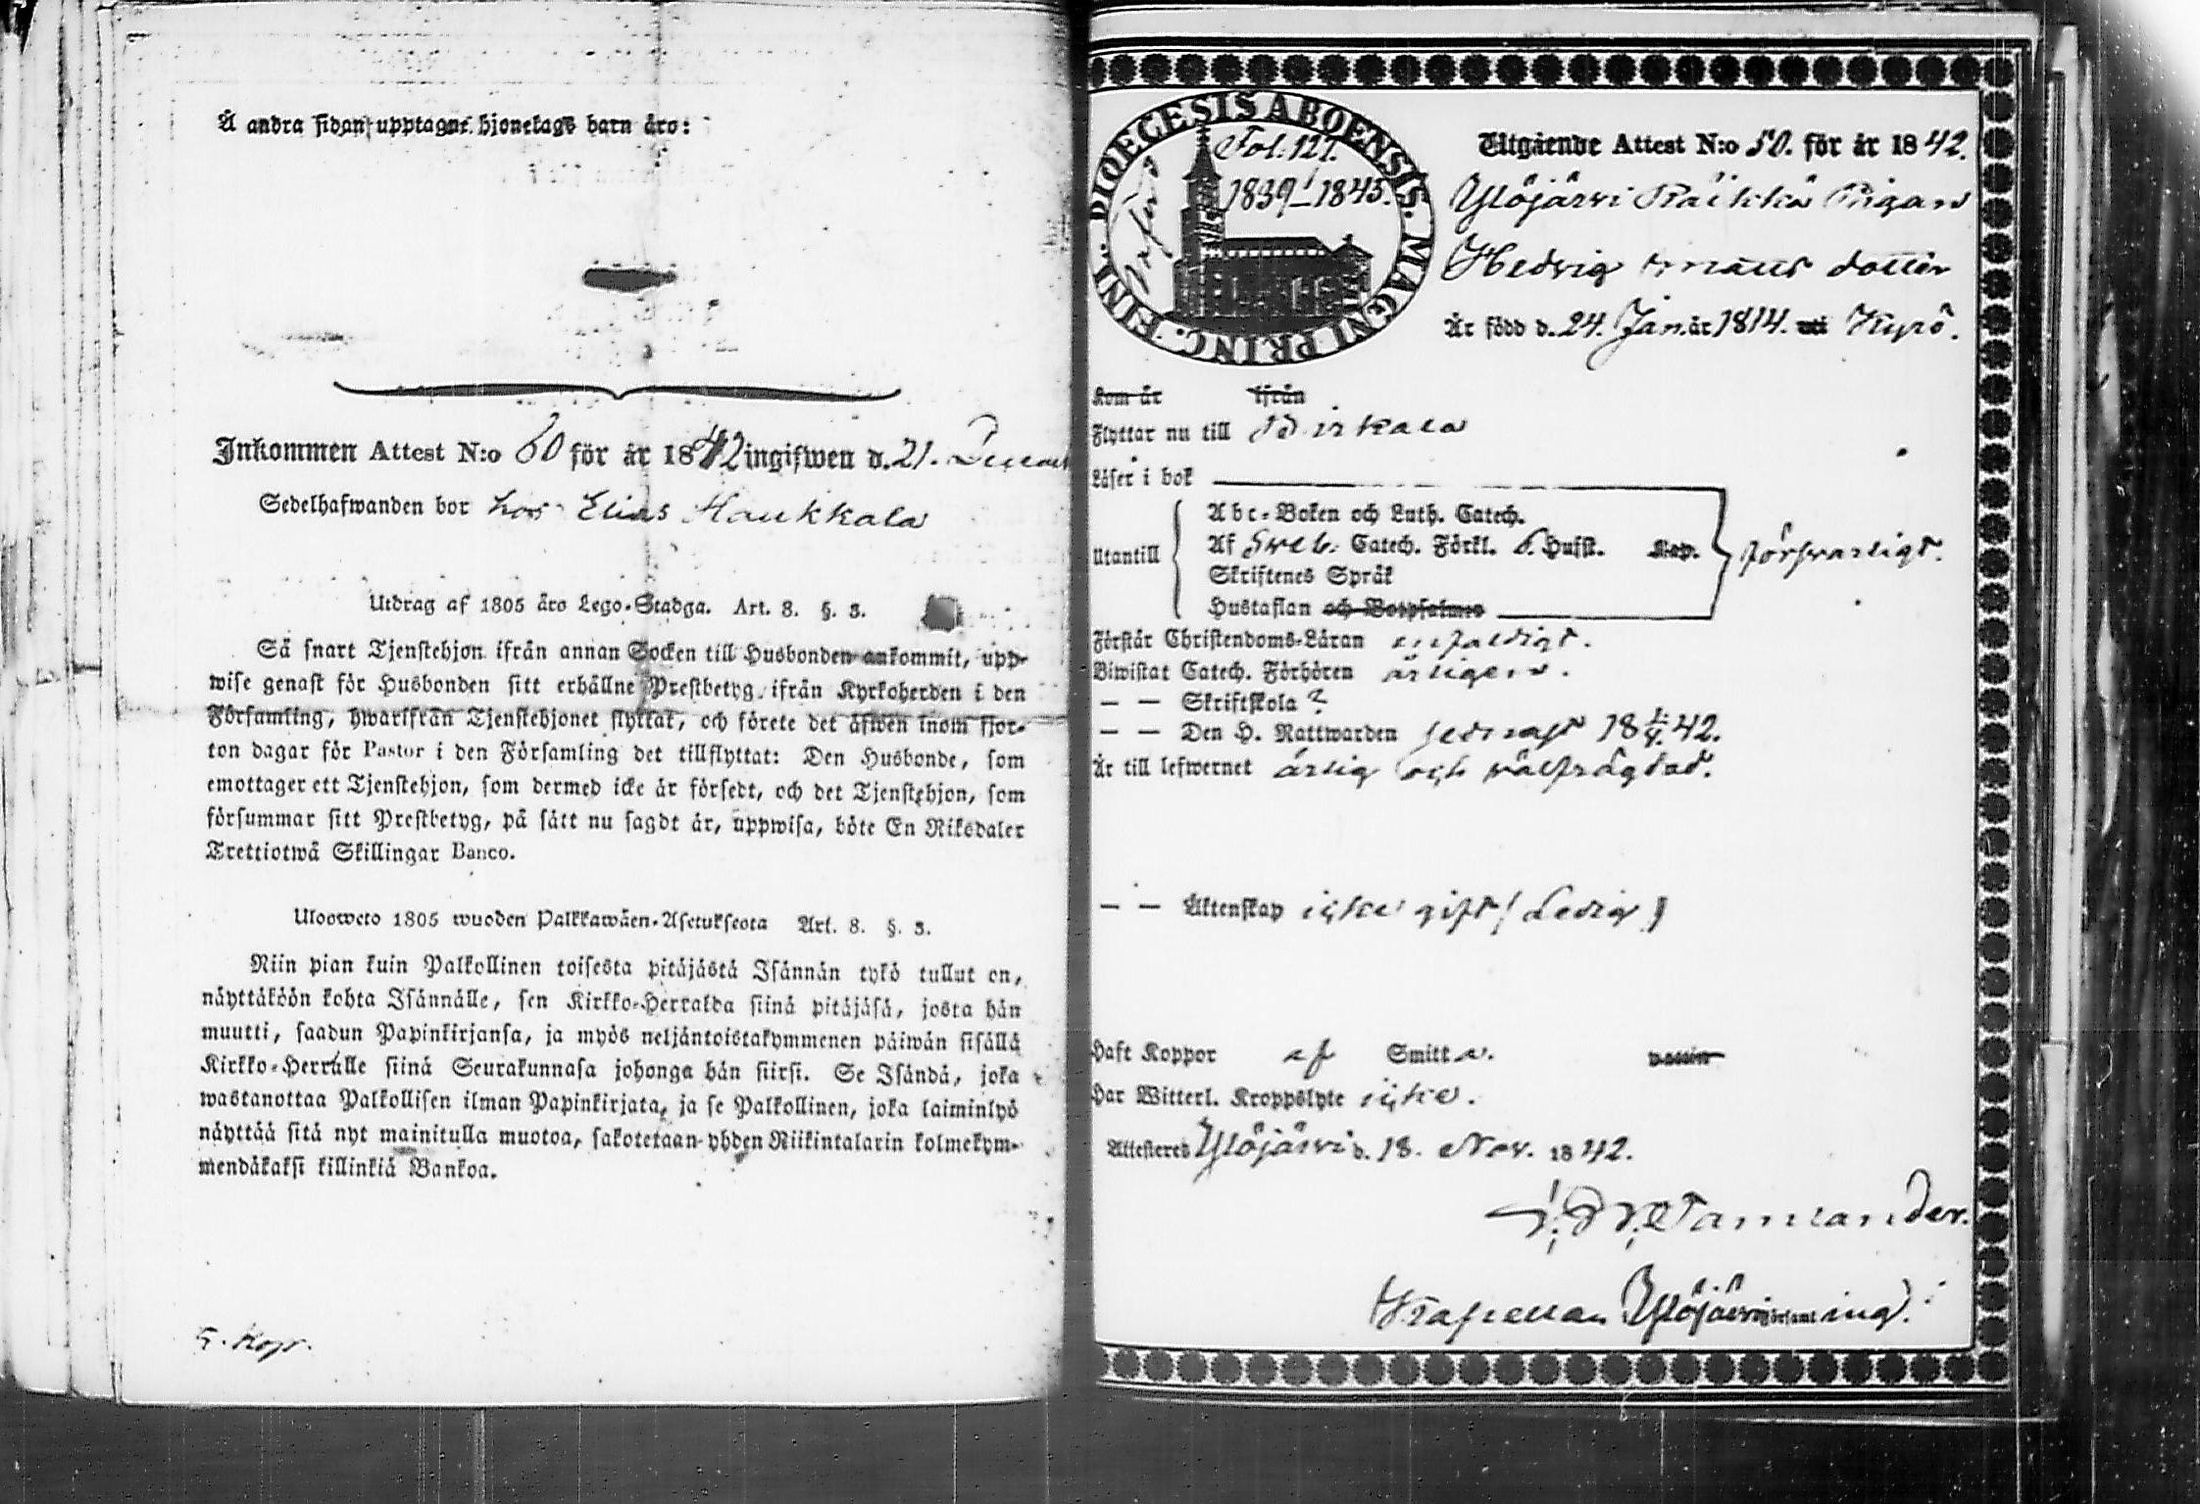 Å andra sidan upptagne hjonelags barn äro:
Inkommen Attest N:o 60 för år 1842 ingifwen d. 21. Decemb
Sedelhafwanden bor hos Elias Haukkala
Utdrag af 1805 åro Lego-Stadga. Art. 8. §. 3.
Så snart Tjenstehjon ifrån annan Socken till Husbonden ankommit, upp-
wise genast för Husbonden sitt erhållne Prestbetyg ifrån Kyrkoherden i den
Församling, hwarifrån Tjenstehjonet flyttat, och förete det äfwen inom fjor-
ton dagar för Pastor i den Församling det tillflyttat: Den Husbonde, som
emottager ett Tjenstehjon, som dermed icke är försedt, och det Tjenstehjon, som
försummar sitt Prestbetyg, på sätt nu sagdt är, uppwisa, böte En Riksdaler
Trettiotwå Skillingar Banco.
Ulosweto 1805 wuoden Palkkawäen-Asetuksesta Art. 8. §. 3.
Niin pian kuin Palkollinen toisesta pitäjästä Isännän tykö tullut on,
näyttäköön kohta Isännälle, sen Kirkko-Herralda siinä pitäjäsä, josta hän
muutti, saadun Papinkirjansa, ja myös neljäntoistakymmenen päiwän sisällä
Kirkko-Herralle siinä Seurakunnasa johonga hän siirsi. Se Isändä, joka
wastanottaa Palkollisen ilman Papinkirjata, ja se Palkollinen, joka laiminlyö
näyttää sitä nyt mainitulla muotoa, sakotetaan yhden Riikintalarin kolmekym-
mendäkaksi killinkiä Bankoa.
5. Kop.
DIOECESIS ABOENSIS. MAGNI PRINC. FINL.
Fol. 127.
1839–1845.
Utgående Attest N:o 50. för år 1842.
Ylöjärvi Räikkä Pigan
Hedvig dotter
Är född d. 24. Jan. år 1814. uti Kyrö.
Kom år ifrån
Flyttar nu till Birkala
Läser i bok
Utantill
Abc-Boken och Luth. Catech.
Af Sweb. Catech. Förkl. 6. Hufst. Kap.
Skriftenes Språk
Hustaflan och Botpsalmes
försvarligt.
Förstår Christendoms-Läran enfaldigt.
Biwistat Catech. Förhören årligen.
— — Skriftskola ?
— — Den H. Nattwarden sednast 18 1/5 42.
Är till lefwernet ärlig och välfrägdad.
— — Äktenskap icke gift/Ledig/
Haft Koppor af Smitta. vaccin
Har Witterl. Kroppslyte icke.
Attesteres Ylöjärvi d. 18. Nov. 1842.
Tamlander.
Kapellan i Ylöjärvi församling.